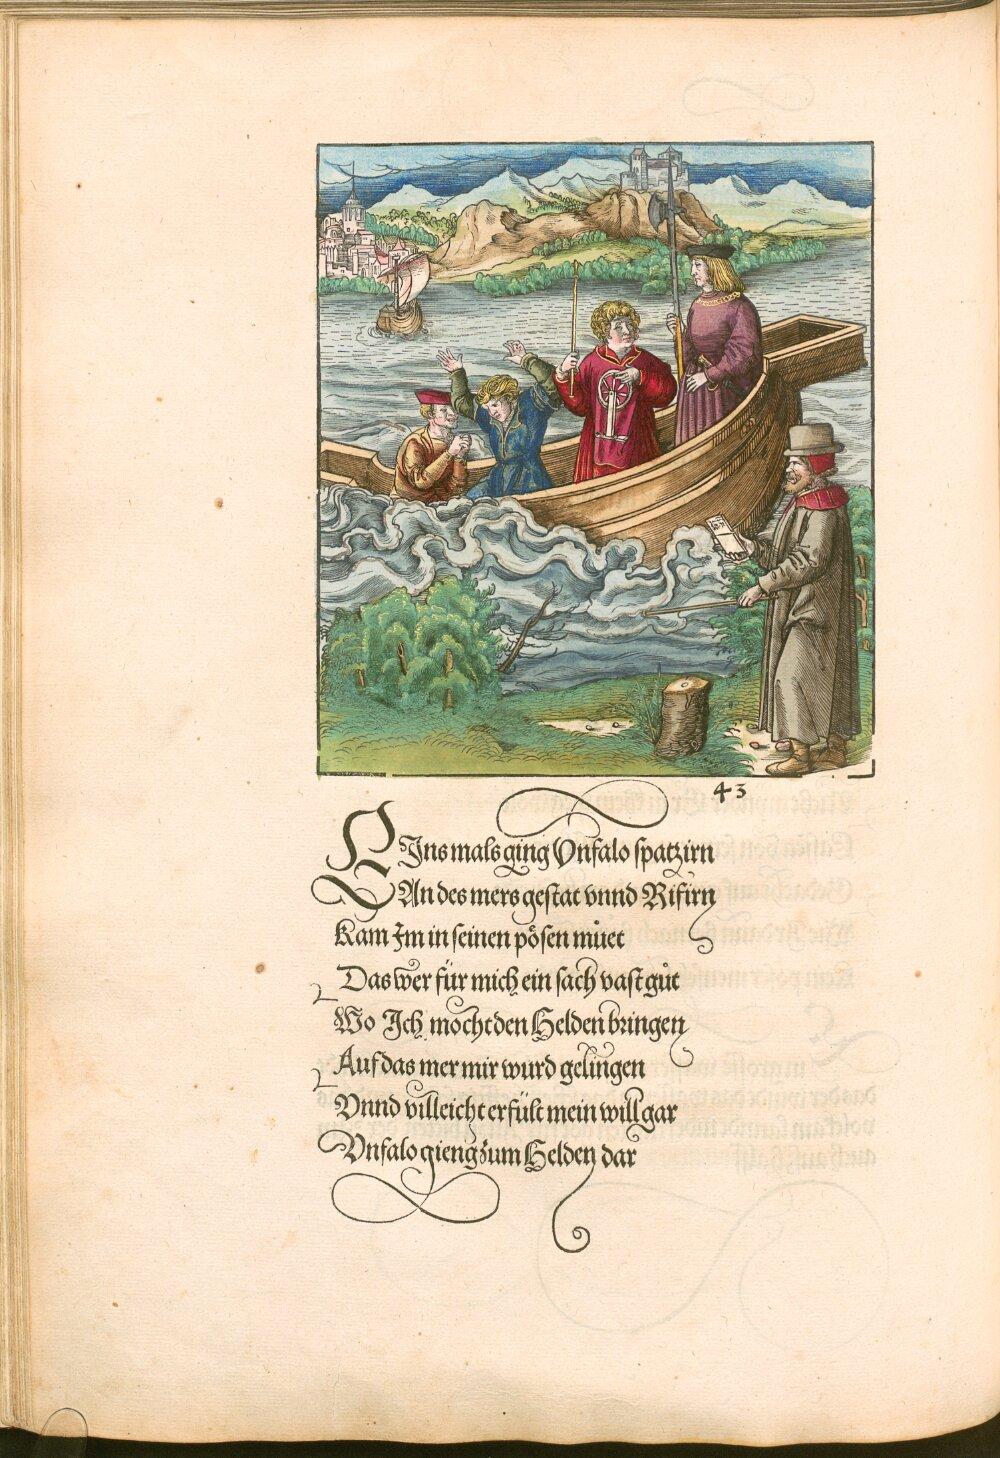 43
EIns mals ging Vnfalo spatzirn
An des mers gestat vnnd Rifirn
Kam Im in seinen pösen můet
Das wer für mich ein sach vast gůt
Wo Ich mocht den Helden bringen
Auf das mer mir wurd gelingen
Vnnd villeicht erfült mein will gar
Vnfalo gieng zum Helden dar